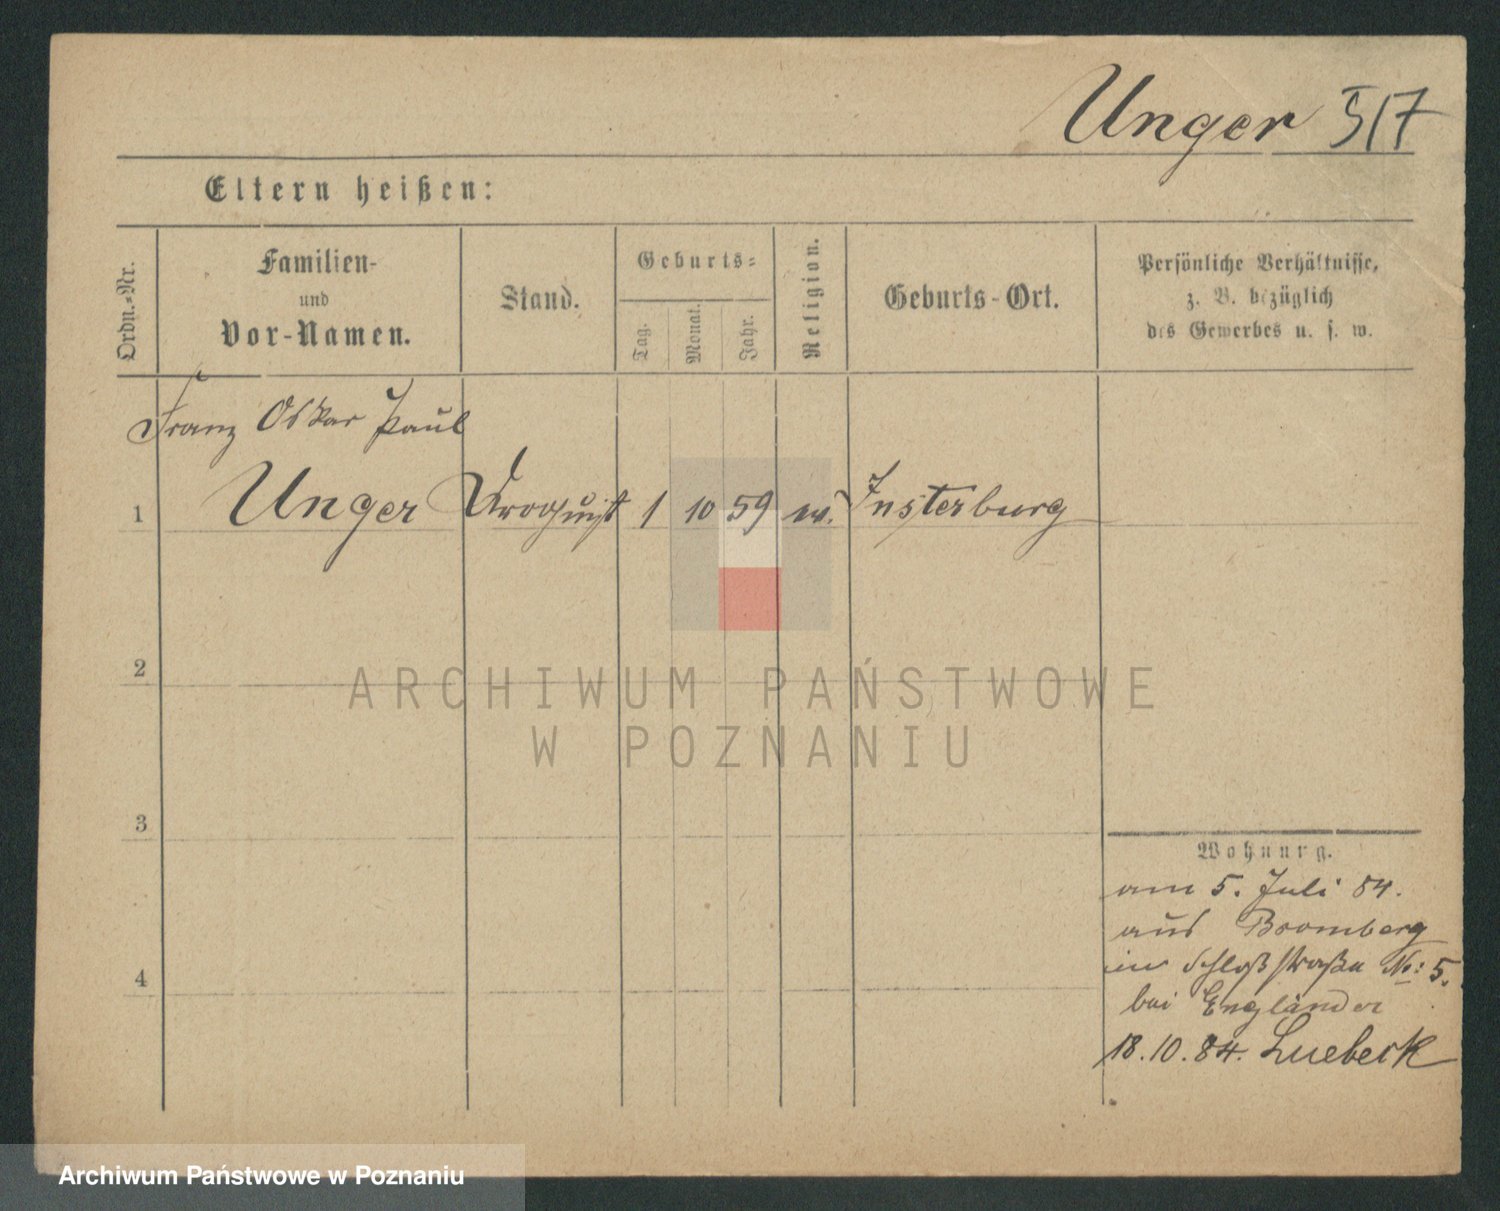 Unger 5/7
Eltern heißen:
Ordn.-Nr.
Familien-
und
Vor-Namen.
Stand.
Geburts-
Tag.
Monat.
Jahr.
Religion.
Geburts-Ort.
Persönliche Verhältnisse,
z. B. bezüglich
des Gewerbes u. s. w.
Franz Oskar Paul
1 Unger Droguist 1 10 59 ev. Insterburg
2
ARCHIWUM PAŃSTWOWE
W POZNANIU
3
Wohnung.
am 5. Juli 84.
aus Bromberg
in Schloßstraße No: 5.
bei Engländer
4
18.10.84. Luebeck
Archiwum Państwowe w Poznaniu